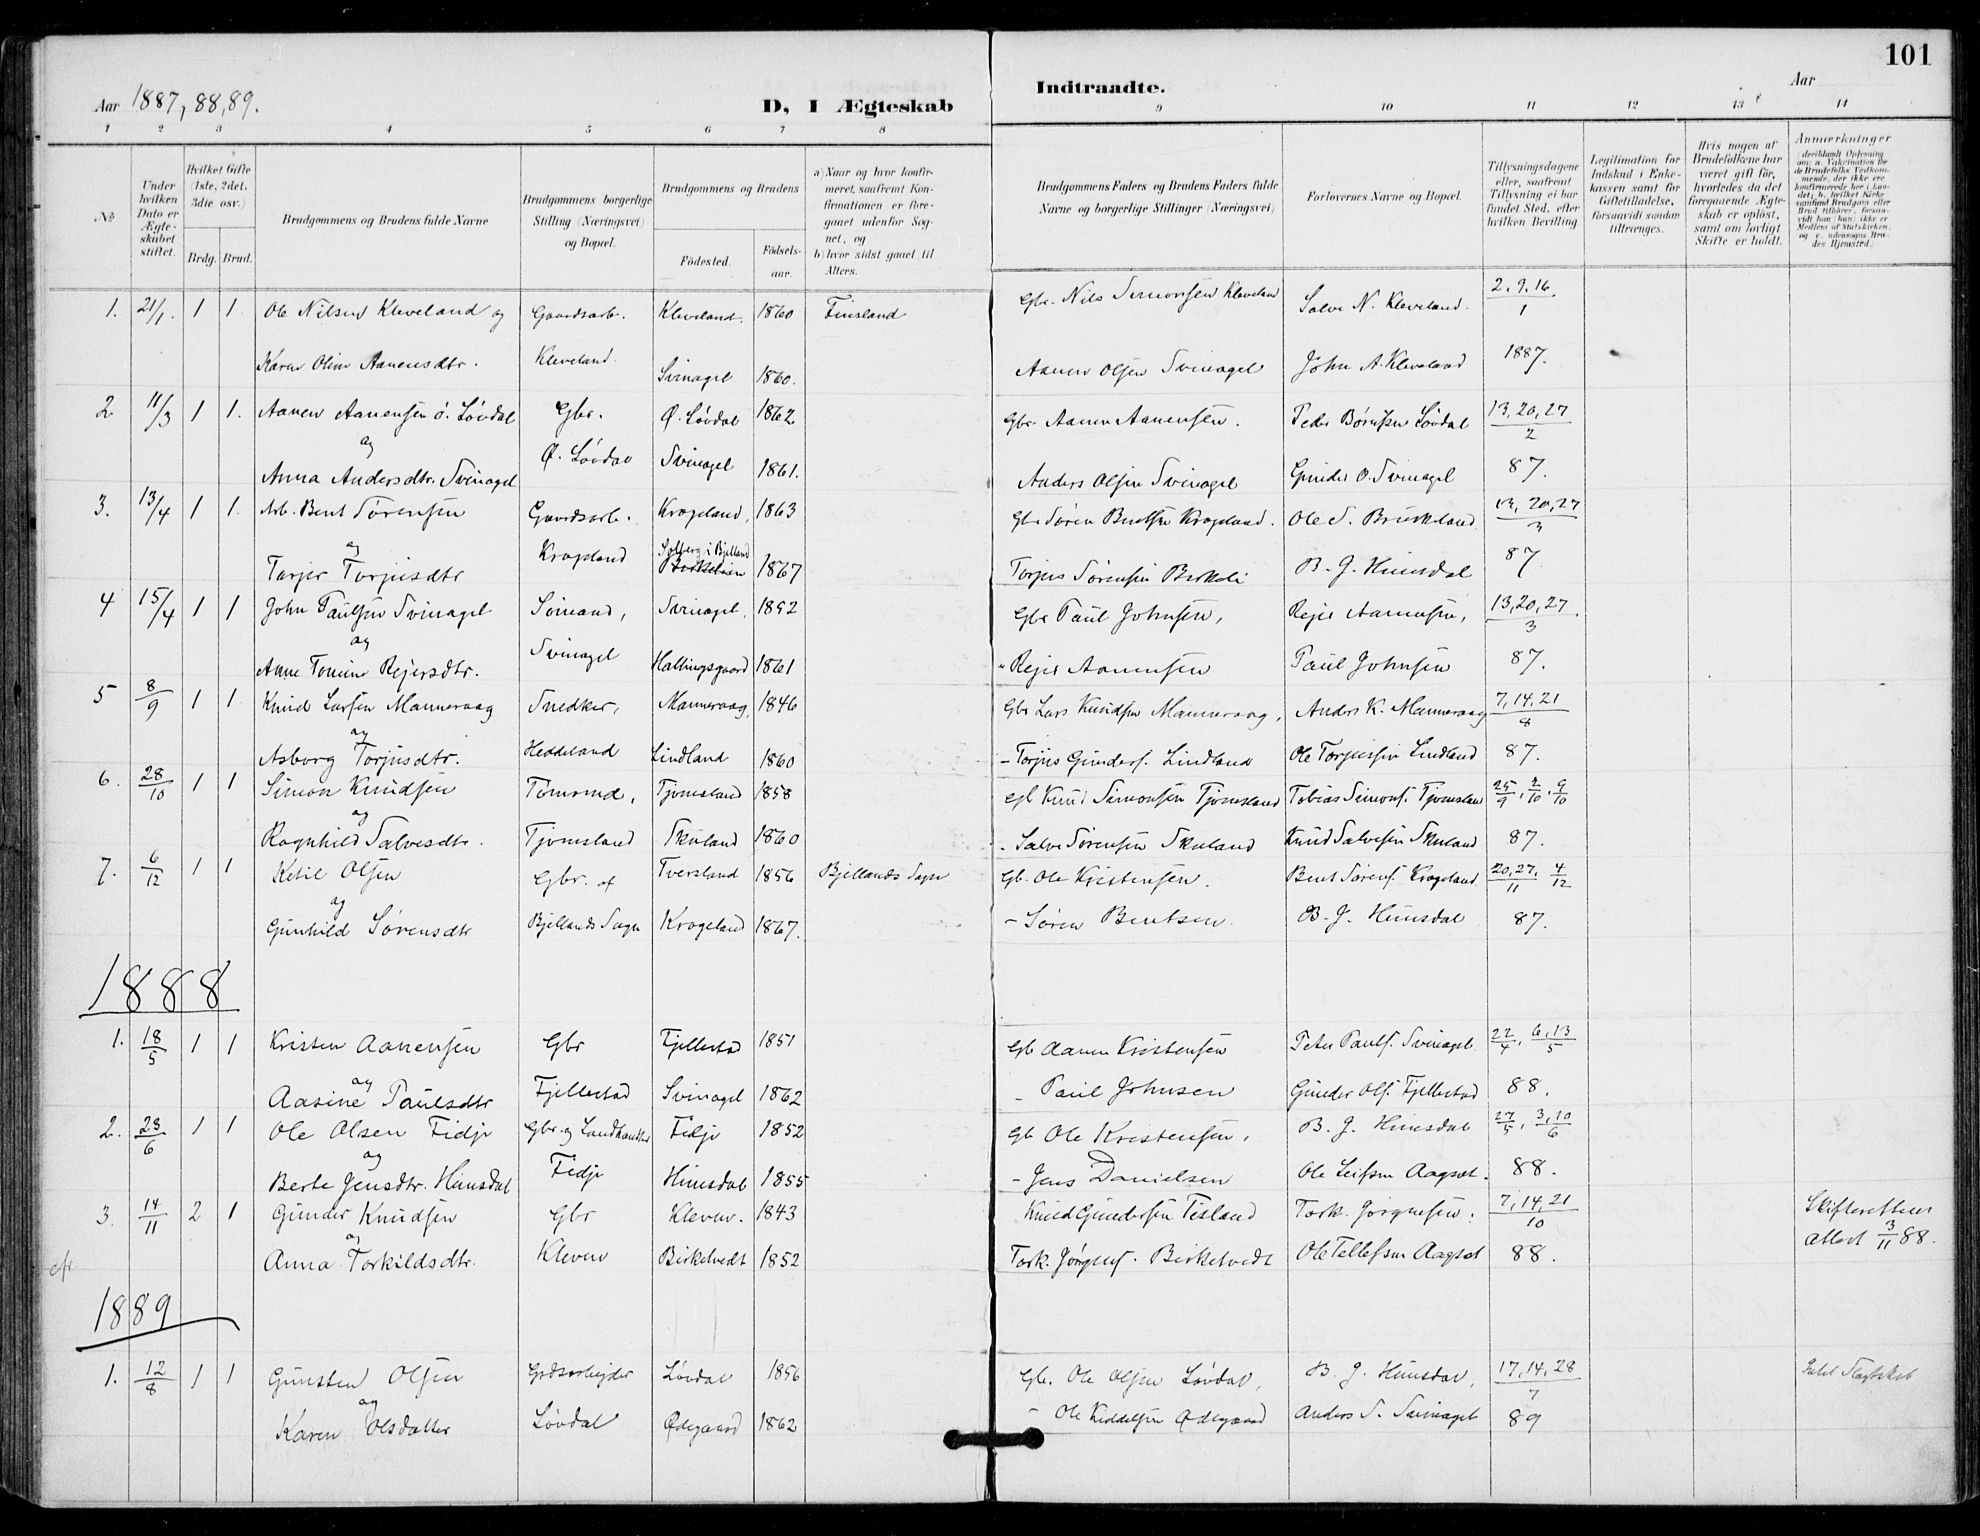 101
Aar 1887, 88, 89.
D, I Ægteskab
Indtraadte.
Aar
1 2 3 4 5 6 7 8 9 10 11 12 13 14
№
Under hvilken Dato er Ægteskabet stiftet.
Hvilket Gifte (1ste, 2det, 3die osv.)
Brdg. Brud.
Brudgommens og Brudens fulde Navne
Brudgommens borgerlige Stilling (Næringsvei) og Bopæl.
Brudgommens og Brudens
Födested.
Födselsaar.
a) Naar og hvor konfirmeret, samfremt Konfirmationen er foregaaet udenfor Sognet, og
b) hvor sidst gaaet til Alters.
Brudgommens Faders og Brudens Faders fulde Navne og borgerlige Stillinger (Næringsvei)
Forlovernes Navne og Bopæl.
Tillysningsdagene eller, saafremt Tillysning ei har fundet Sted, efter hvilken Bevilling
Legitimation for Indskud i Enkekassen samt for Giftetilladelse, forsaavidt saadan tiltrænges.
Hvis nogen af Brudefolkene har været gift för, hvorledes da det foregaaende Ægteskab er oplöst, samt om lovligt Skifte er holdt.
Anmærkninger
(deriblandt Oplysning om: a. Vakcination for de Brudefolks Vedkommende, der ikke ere konfirmerede her i Landet; b. hvilket Kirkesamfund Brudgom eller Brud tilhörer, forsaavidt han (hun) ikke er Medlem af Statskirken, og c. udensogns Brudes Hjemsted.)
1. 21/1. 1 1 Ole Nilsen Kleveland og Gaardsarb. Kleveland. 1860 Finsland Gbr. Nils Simonsen Kleveland Salve N. Kleveland. 2, 9, 16/1
Karen Oline Aanensdtr. Kleveland. Svinagel 1860. Aanen Olsen Svinagel John A. Kleveland 1887.
2 11/3 1 1. Aanen Aanensen ö. Lövdal Gbr. Ø. Lövdal 1862 Gbr. Aanen Aanensen. Peder Börufsen Lövdal 13, 20, 27/2
og
Anna Andersdtr. Svinagel Ø. Lövdal Svinagel 1861. Anders Olsen Svinagel Gunder O. Svinagel 87.
3. 13/4 1 1. Arb. Bent Sörensen Gaardsarb. Krageland, 1863 Gbr Sören Bentsen Krageland. Ole S. Brukeland 13, 20, 27/3
og
Tarjer Torjusdtr Krageland Solberg i Bjelland 1867 Torjus Sörensen Birkeli B. J. Hunsdal 87.
4 15/4 1 1 John Paulsen Svinagel Sömand, Svinagel, 1852 Gbr Paul Johnsen, Rejer Aanensen, 13, 20, 27./3
og
Anne Tomine Rejersdtr. Svinagel Hallingsgaard 1861 " Rejer Aanensen Paul Johnsen 87.
5 8/9 1 1 Knud Larsen Manneraag Snedker, Manneraag, 1846 Gbr Lars Knudsen Manneraag, Anders K. Manneraag 7, 14, 21/8
og
Asborg Torjusdtr. Heddeland Lindland 1860 - Torjus Gunders. Lindland Ole Torjussen Lindland 87.
6. 28/10 1 1 Simon Knudsen Tömmd, Tjomsland 1858 Gb Knud Simonsen Tjomsland Tobias Simons. Tjomsland 25/9, 2/10, 9/10
og
Ragnhild Salvesdtr. Tjomsland Skuland 1860 - Salve Sörensen Skuland Knud Salvesen Skuland 87.
7. 6/12 1 1 Ketil Olsen Gbr. af Tversland 1856 Bjellands Sogn Gb. Ole Kristensen. Bent Sörens. Krageland 20, 27/11, 4/12
og
Gunhild Sörensdtr Bjellands Sogn Krageland 1867. - Sören Bentsen. B. J. Hunsdal 87.
1888
1. 18/5 1 1 Kristen Aanensen Gbr Fjellestad 1851 Gb Aanen Kristensen Peter Pauls. Svinagel 22/4, 6, 13/5
og
Aasine Paulsdtr Fjellestad Svinagel 1862 - Paul Johnsen Gunder Ols. Fjellestad 88.
2. 23/6 1 1 Ole Olsen Fidje Gbr. og Landhandler Fidje 1852 Gb Ole Kristensen, B. J. Hunsdal 27/5, 3, 10/6
og
Berte Jensdtr. Hunsdal Fidje Hunsdal 1855 - Jens Danielsen Ole Leifsen Aagset. 88.
3. 14/11 2 1 Gunder Knudsen Gbr Kleven. 1843 Knud Gundersen Tisland Tork. Jörgensen. 7, 14, 21/10 Skifterettens
og
cfr. Anna Torkildsdtr. Kleven Birketvedt 1852 Tork. Jörgens. Birketvedt Ole Tellefsen Aagset 88. attest 3/11 88.
1889
1. 12/8 1 1 Gunsten Olsen Grdsarbejder Lövdal 1856 Gb. Ole Olsen Lövdal, B. J. Hunsdal, 17, 14, 28/7
og
Karen Olsdatter Lövdal Ødegaard 1862 - Ole Kiddelsen Ødegaard Anders S. Svinagel 89